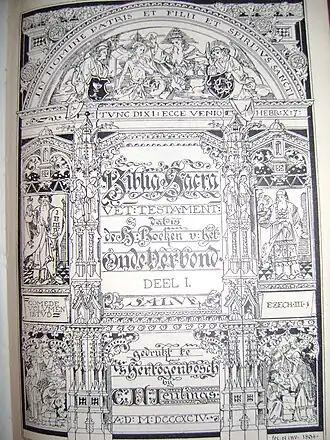 IN NOMINE PATRIS ET FILII ET SPIRITUS SANCTI
TVNC DIXI: ECCE VENIO HEBR: X: 7:
Biblia Sacra
VET: TESTAMENT:
dat is
de H. Boeken v: het
Oude Verbond
DEEL I.
COMEDE
VOLVMEN
ISTVD
EZECH: III: 1
gedrukt te
's Hertogenbosch
bij
A: D: MDCCCXCIV